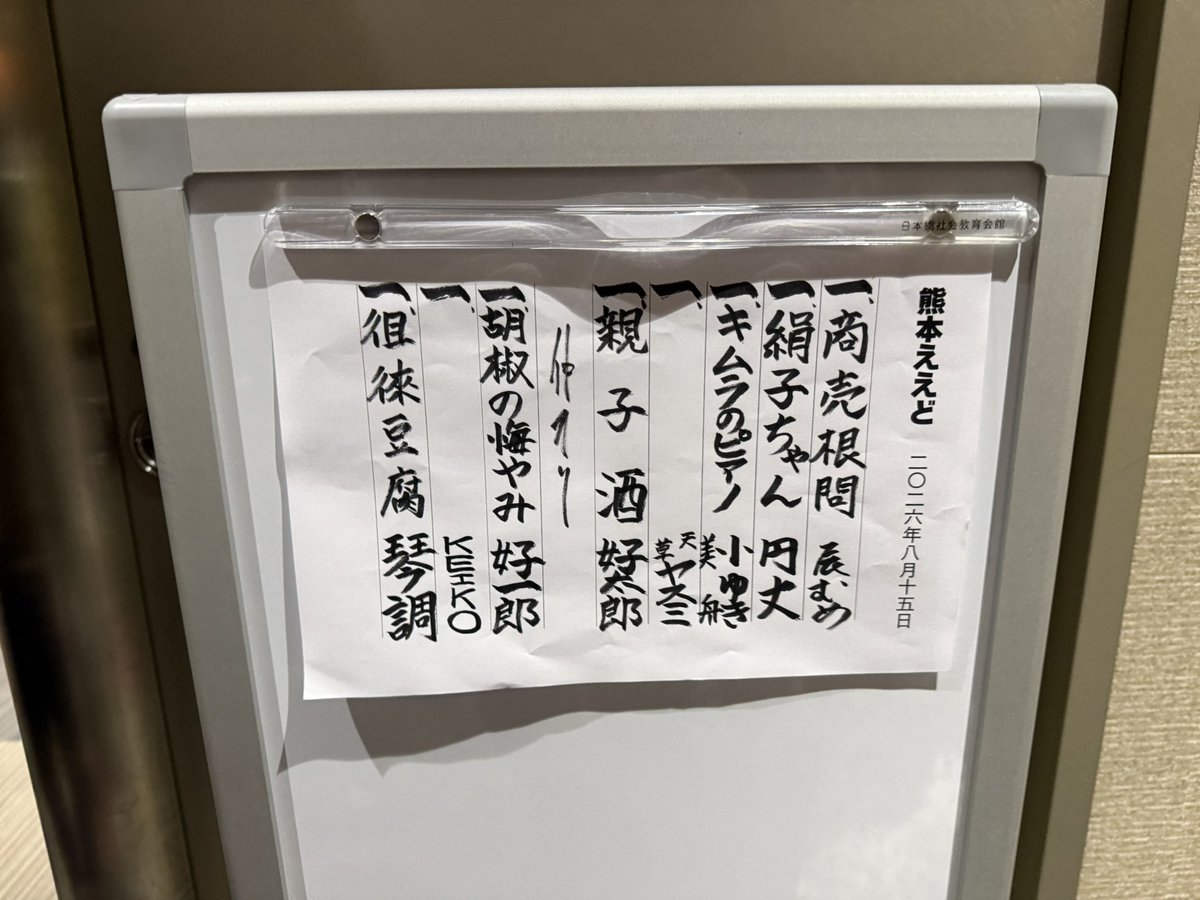 日本橋社会教育会館
熊本ええど 二〇二六年八月十五日
一、商売根問 辰むめ
一、絹子ちゃん 円丈
一、キムラのピアノ 小ゆき 美舟
一、 天草ヤスミ
一、親子酒 好太郎
仲入り
一、胡椒の悔やみ 好一郎
一、 KEIKO
一、徂徠豆腐 琴調